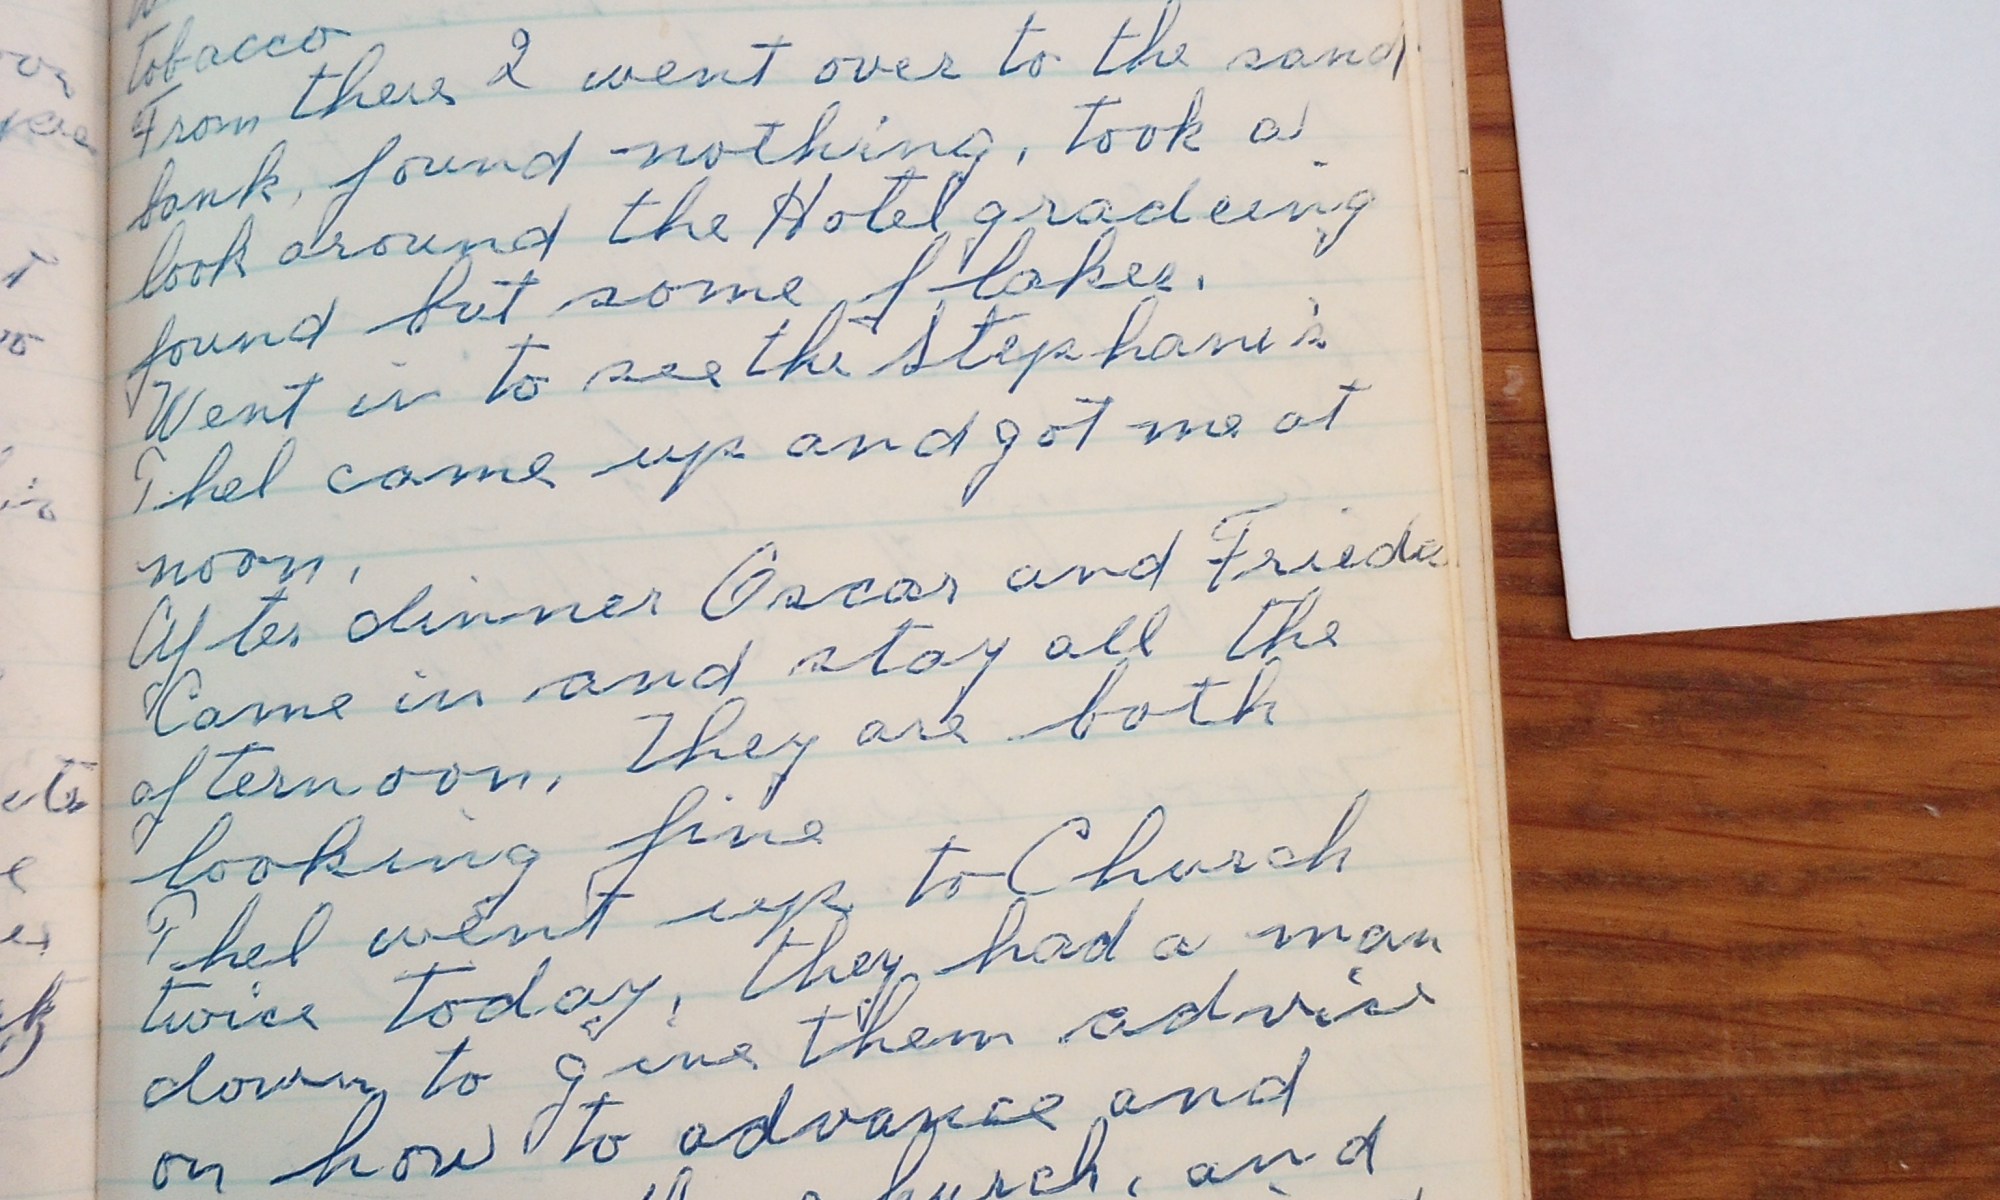 tobacco
From there I went over to the sand
bank, found nothing, took a
look around the Hotel gradeing
found but some flakes.
Went in to see the Stephani's
Thel came up and got me at
noon,
After dinner Oscar and Frieda
Came in and stay all the
afternoon, They are both
looking fine
Thel went up to Church
twice today, they had a man
down to give them advice
on how to advance and
church, and